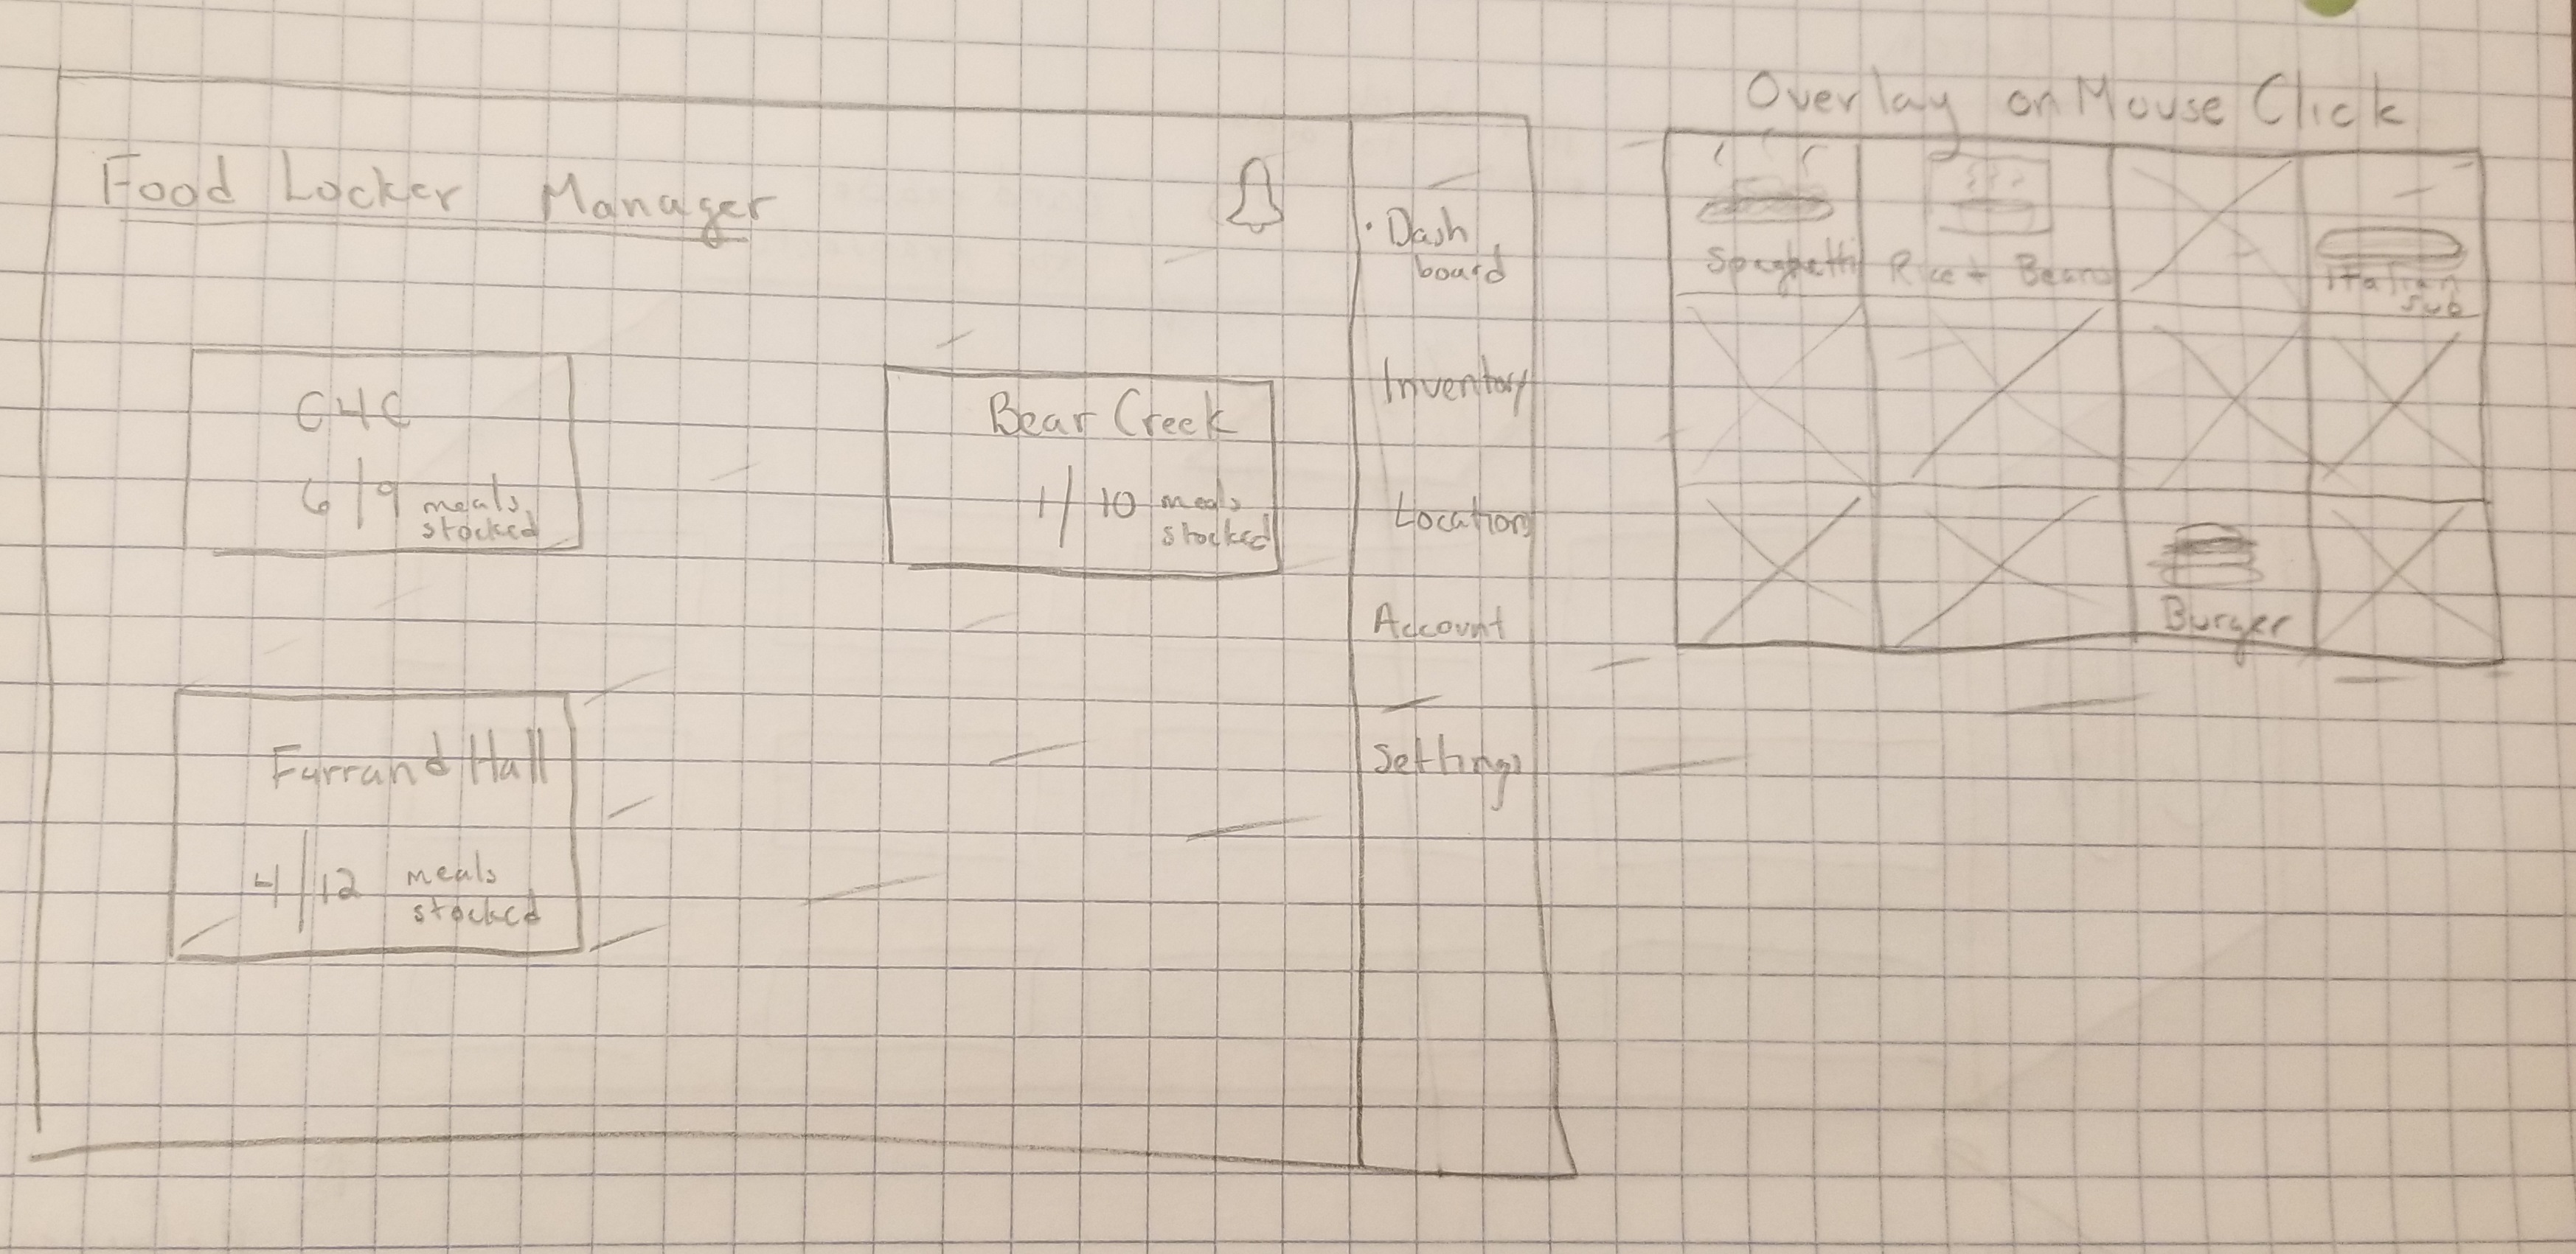 Food Locker Manager
C4C
6/9 meals
stocked
Bear Creek
1/10 meals
stocked
Farrand Hall
4/12 meals
stocked
· Dash
board
Inventory
Locations
Account
Settings
Overlay on Mouse Click
Spaghetti
Rice + Beans
Italian
Sub
Burger